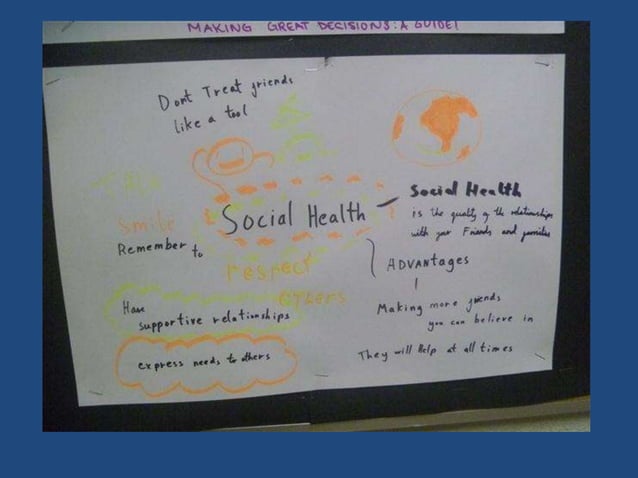 MAKING GREAT DECISIONS: A GUIDE!
Dont Treat friends
like a tool
Smile
Remember to
respect
others
Have
supportive relationships
express needs to others
Social Health
Social Health
is the quality of the relationships
with your Friends and families
ADVANTAGES
Making more friends
you can believe in
They will Help at all times